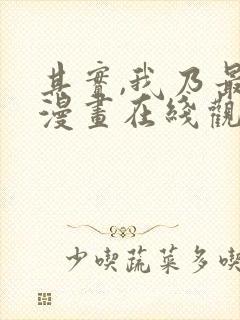 其實,我乃最
漫畫在綫觀
少喫蔬菜多喫